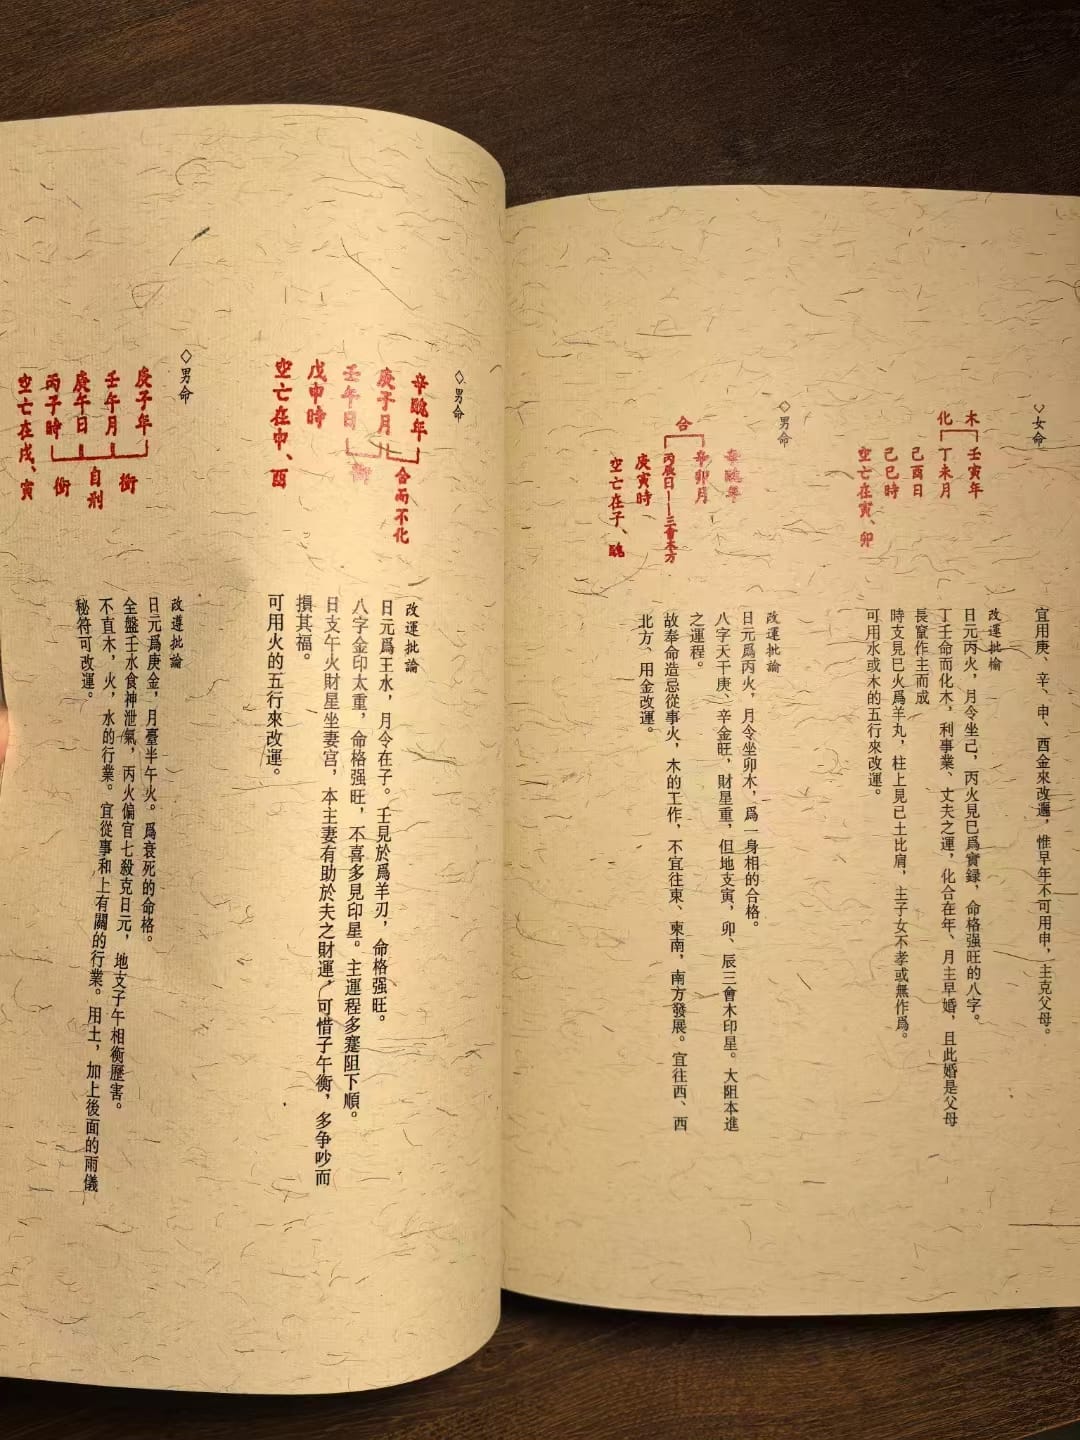 宜用庚、辛、申、酉金來改運，惟早年不可用申，主克父母。
◇女命
木
化
壬寅年
丁未月
己酉日
己巳時
空亡在寅、卯
改運批論
日元丙火，月令坐己，丙火見巳爲實録，命格强旺的八字。
丁壬命而化木，利事業、丈夫之運，化合在年、月主早婚，且此婚是父母
長竄作主而成
時支見巳火爲羊丸，柱上見已土比肩，主子女不孝或無作爲。
可用水或木的五行來改運。
◇男命
合
辛醜年
辛卯月
丙辰日——三會木方
庚寅時
空亡在子、醜
改運批論
日元爲丙火，月令坐卯木，爲一身相的合格。
八字天干庚、辛金旺，財星重，但地支寅，卯、辰三會木印星。大阻本進
之運程。
故奉命造忌從事火，木的工作，不宜往東、東南，南方發展。宜往西、西
北方、用金改運。
◇男命
辛醜年
庚子月
壬午日
戊申時
空亡在申、酉
合而不化
衝
改運批論
日元爲王水，月令在子。壬見於爲羊刃，命格强旺。
八字金印太重，命格强旺，不喜多見印星。主運程多蹇阻下順。
日支午火財星坐妻宫，本主妻有助於夫之財運，可惜子午衡，多争吵而
損其福。
可用火的五行來改運。
◇男命
庚子年
壬午月
庚午日
丙子時
空亡在戌、寅
衝
自刑
衝
改運批論
日元爲庚金，月臺半午火。爲衰死的命格。
全盤壬水食神泄氣，丙火偏官七殺克日元，地支子午相衡壓害。
不直木，火，水的行業。宜從事和上有關的行業。用土，加上後面的雨儀
秘符可改運。